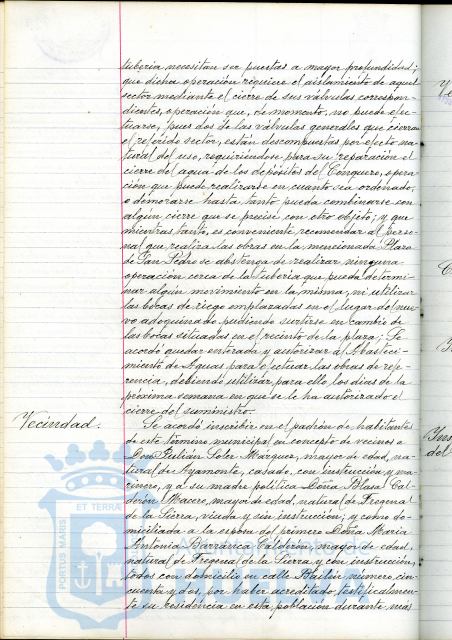 tubería necesitan ser puestas a mayor profundidad;
que dicha operación requiere el aislamiento de aquel
sector mediante el cierre de sus válvulas correspon-
dientes, operación que, de momento, no puede efec-
tuarse, pues dos de las válvulas generales que cierran
el referido sector, están descompuestas por efecto na-
tural del uso, requiriéndose para su reparación el
cierre del agua de los depósitos del Conquero, opera-
ción que puede realizarse en cuanto sea ordenado,
o demorarse hasta tanto pueda combinarse con
algún cierre que se precise con otro objeto; y que
mientras tanto, es conveniente recomendar al perso-
nal que realiza las obras en la mencionada Plaza
de San Pedro se abstenga de realizar ninguna
operación cerca de la tubería que pueda determi-
nar algún movimiento en la misma, ni utilizar
las bocas de riego emplazadas en el lugar del nue-
vo adoquinado pudiendo surtirse en cambio de
las bocas situadas en el recinto de la plaza; Se
acordó quedar enterada y autorizar al Abasteci-
miento de Aguas para efectuar las obras de refe-
rencia, debiendo utilizar para ello los días de la
próxima semana en que se le ha autorizado el
cierre del suministro.
Vecindad.
Se acordó inscribir en el padrón de habitantes
de este término municipal en concepto de vecinos a
Don Julián Soler Márquez, mayor de edad, na-
tural de Ayamonte, casado, con instrucción, y ma-
rinero, y a su madre política Doña Blasa Cal-
derón Macero, mayor de edad, natural de Fregenal
de la Sierra, viuda y sin instrucción; y como do-
miciliada a la esposa del primero Doña María
Antonia Barranca Calderón, mayor de edad,
natural de Fregenal de la Sierra y con instrucción,
todos con domicilio en calle Bailén número cin-
cuenta y dos, por haber acreditado testificalmen-
te su residencia en esta población durante más
PORTUS MARIS ET TERRAE